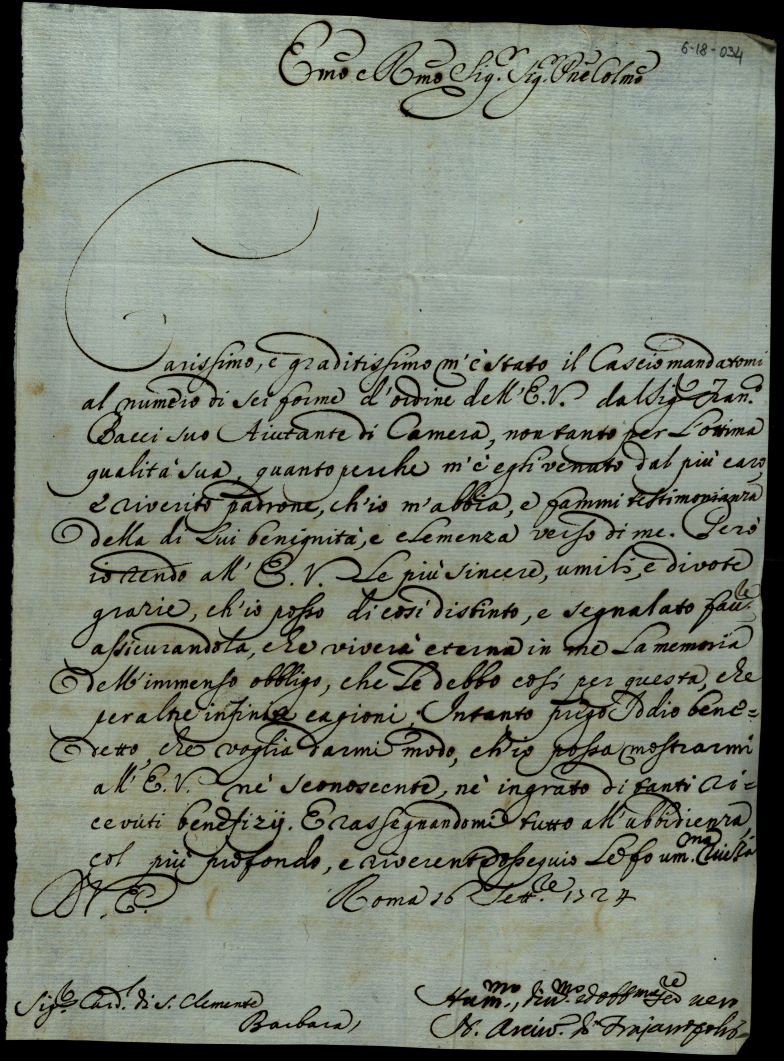 6-18-034
Emo e Rmo Sig.r Sig.r Pne Colmo
Carissimo, e graditissimo m'è stato il Cascio mandatomi
al numero di sei forme d'ordine dell'E.V. dal Sig.r Fran.o
Bacci suo Aiutante di Camera, non tanto per l'ottima
qualità sua, quanto perche m'è egli venuto dal più caro,
e riverito padrone, ch'io m'abbia, e fammi testimonianza
della di Lui benignità, e clemenza verso di me. Però
io rendo all'E.V. Le più sincere, umili, e divote
grazie, ch'io posso di così distinto, e segnalato fau.re
assicurandola, che viverà eterna in me La memoria
dell'immenso obbligo, che Le debbo così per questa, che
per altre infinite cagioni. Intanto prego Iddio bene=
detto che voglia darmi modo, ch'io possa mostrarmi
all'E.V. nè sconoscente, nè ingrato di tanti ri=
ceuuti benefizij. E rassegnandomi tutto all'ubbidienza
col più profondo, e riverente ossequio Le fo um.ma riu.za
D V. E.
Roma 16 Sett.re 1724
Sig.r Card. di S. Clemente
Barbara
Hum.mo, diu.mo ed obb.mo se.re vero
N. Arciv. di Trajanopoli